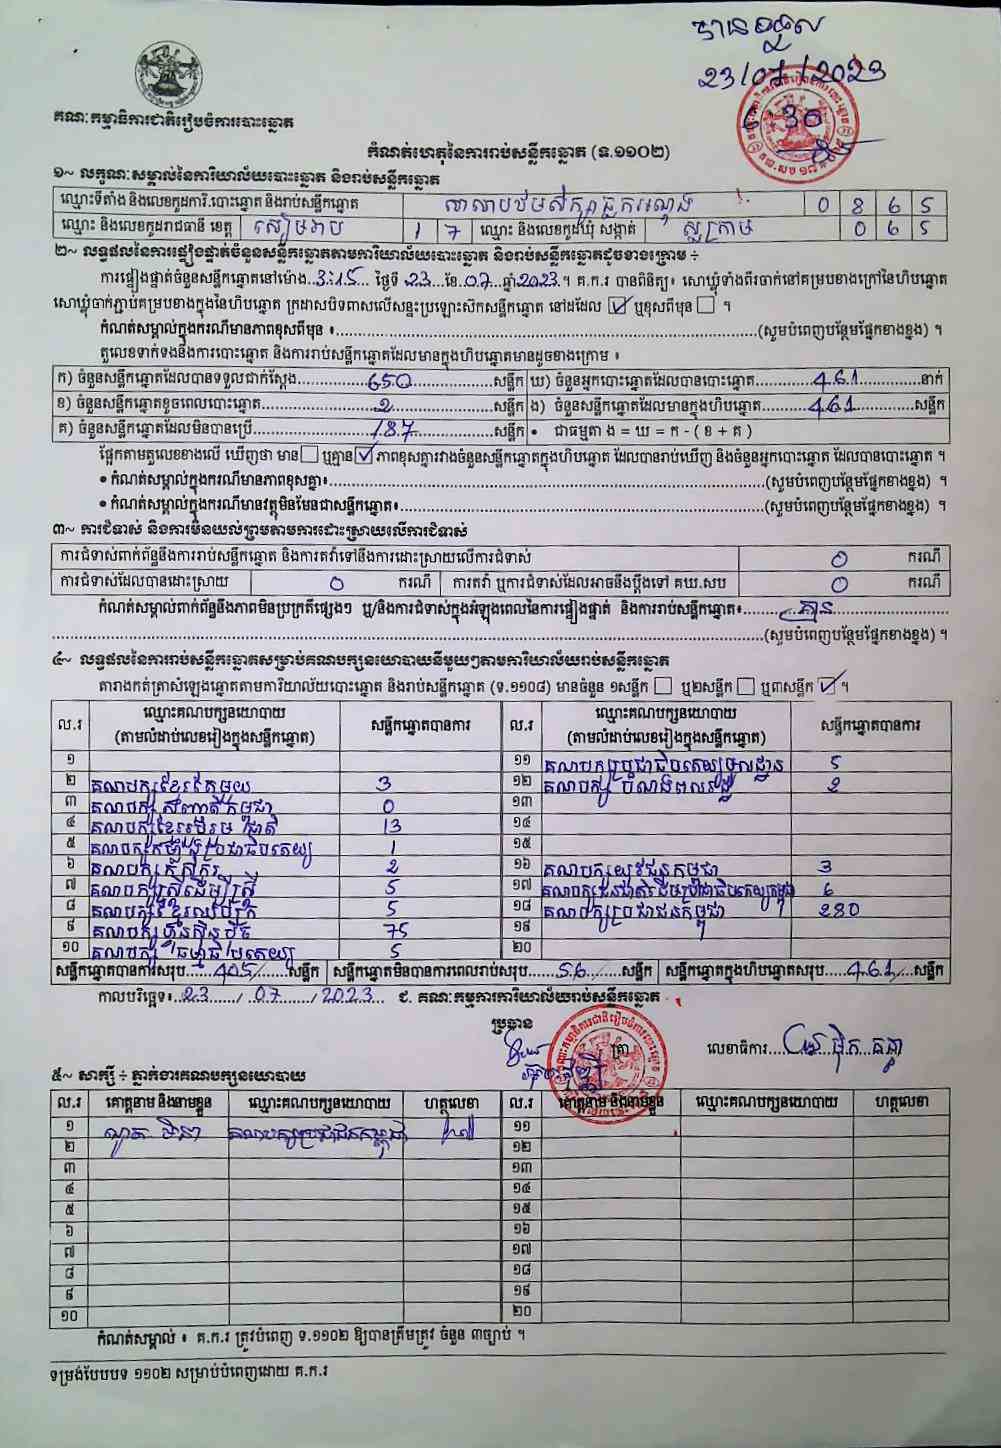 បានទទួល
23/07/2023
6:30
គណៈកម្មាធិការជាតិរៀបចំការបោះឆ្នោត
កំណត់ហេតុនៃការរាប់សន្លឹកឆ្នោត (ទ.១១០២)
១~ លក្ខណៈសម្គាល់នៃការិយាល័យបោះឆ្នោត និងរាប់សន្លឹកឆ្នោត
ឈ្មោះទីតាំង និងលេខកូដការិ.បោះឆ្នោត និងរាប់សន្លឹកឆ្នោត 0 8 6 5
ឈ្មោះ និងលេខកូដរាជធានី ខេត្ត សៀមរាប 1 7 ឈ្មោះ និងលេខកូដឃុំ សង្កាត់ ស្លក្រាម 0 6 5
២~ លទ្ធផលនៃការផ្ទៀងផ្ទាត់ចំនួនសន្លឹកឆ្នោតតាមការិយាល័យបោះឆ្នោត និងរាប់សន្លឹកឆ្នោតដូចខាងក្រោម ÷
ការផ្ទៀងផ្ទាត់ចំនួនសន្លឹកឆ្នោតនៅម៉ោង..3:15... ថ្ងៃទី .23...ខែ.07..ឆ្នាំ.2023.។ គ.ក.រ បានពិនិត្យ៖ សោឃ្លុំទាំងពីរចាក់នៅគម្របខាងក្រៅនៃហិបឆ្នោត
សោឃ្លុំចាក់ភ្ជាប់គម្របខាងក្នុងនៃហិបឆ្នោត ក្រដាសបិទពាសលើសន្ទះប្រឡោះស៊កសន្លឹកឆ្នោត នៅដដែល ☑ ឬខុសពីមុន ☐ ។
កំណត់សម្គាល់ក្នុងករណីមានភាពខុសពីមុន ៖....................(សូមបំពេញបន្ថែមផ្នែកខាងខ្នង) ។
តួលេខទាក់ទងនឹងការបោះឆ្នោត និងការរាប់សន្លឹកឆ្នោតដែលមានក្នុងហិបឆ្នោតមានដូចខាងក្រោម ៖
ក) ចំនួនសន្លឹកឆ្នោតដែលបានទទួលជាក់ស្តែង......650......សន្លឹក ឃ) ចំនួនអ្នកបោះឆ្នោតដែលបានបោះឆ្នោត......461......នាក់
ខ) ចំនួនសន្លឹកឆ្នោតខូចពេលបោះឆ្នោត......2......សន្លឹក ង) ចំនួនសន្លឹកឆ្នោតដែលមានក្នុងហិបឆ្នោត......461......សន្លឹក
គ) ចំនួនសន្លឹកឆ្នោតដែលមិនបានប្រើ......187......សន្លឹក • ជាធម្មតា ង = ឃ = ក - ( ខ + គ )
ផ្អែកតាមតួលេខខាងលើ ឃើញថា មាន ☐ ឬគ្មាន ☑ ភាពខុសគ្នារវាងចំនួនសន្លឹកឆ្នោតក្នុងហិបឆ្នោត ដែលបានរាប់ឃើញ និងចំនួនអ្នកបោះឆ្នោត ដែលបានបោះឆ្នោត ។
• កំណត់សម្គាល់ក្នុងករណីមានភាពខុសគ្នា៖....................(សូមបំពេញបន្ថែមផ្នែកខាងខ្នង) ។
• កំណត់សម្គាល់ក្នុងករណីមានវត្ថុមិនមែនជាសន្លឹកឆ្នោត៖....................(សូមបំពេញបន្ថែមផ្នែកខាងខ្នង) ។
៣~ ការជំទាស់ និងការមិនយល់ព្រមតាមការដោះស្រាយលើការជំទាស់
ការជំទាស់ពាក់ព័ន្ធនឹងការរាប់សន្លឹកឆ្នោត និងការតវ៉ាទៅនឹងការដោះស្រាយលើការជំទាស់ 0 ករណី
ការជំទាស់ដែលបានដោះស្រាយ 0 ករណី ការតវ៉ា ឬការជំទាស់ដែលអាចនឹងប្តឹងទៅ គឃ.សប 0 ករណី
កំណត់សម្គាល់ពាក់ព័ន្ធនឹងភាពមិនប្រក្រតីផ្សេងៗ ឬ/និងការជំទាស់ក្នុងអំឡុងពេលនៃការផ្ទៀងផ្ទាត់ និងការរាប់សន្លឹកឆ្នោត៖......គ្មាន......
....................(សូមបំពេញបន្ថែមផ្នែកខាងខ្នង) ។
៤~ លទ្ធផលនៃការរាប់សន្លឹកឆ្នោតសម្រាប់គណបក្សនយោបាយនីមួយៗតាមការិយាល័យរាប់សន្លឹកឆ្នោត
តារាងកត់ត្រាសំឡេងឆ្នោតតាមការិយាល័យបោះឆ្នោត និងរាប់សន្លឹកឆ្នោត (ទ.១១០៨) មានចំនួន ១សន្លឹក ☐ ឬ២សន្លឹក ☐ ឬ៣សន្លឹក ☑ ។
ល.រ ឈ្មោះគណបក្សនយោបាយ (តាមលំដាប់លេខរៀងក្នុងសន្លឹកឆ្នោត) សន្លឹកឆ្នោតបានការ ល.រ ឈ្មោះគណបក្សនយោបាយ (តាមលំដាប់លេខរៀងក្នុងសន្លឹកឆ្នោត) សន្លឹកឆ្នោតបានការ
១ ១១ គណបក្សប្រជាធិបតេយ្យមូលដ្ឋាន 5
២ គណបក្សខ្មែរតែមួយ 3 ១២ គណបក្ស បំណងពលរដ្ឋ 2
៣ គណបក្ស សញ្ជាតិកម្ពុជា 0 ១៣
៤ គណបក្សខ្មែររួបរួម ជាតិ 13 ១៤
៥ គណបក្ស ប្រជាធិបតេយ្យ 1 ១៥
៦ គណបក្សកសិករ 2 ១៦ គណបក្សយុវជនកម្ពុជា 3
៧ គណបក្សស្រ្តីដើម្បីស្រ្តី 5 ១៧ គណបក្សជនជាតិដើមប្រជាធិបតេយ្យកម្ពុជា 6
៨ គណបក្សខ្មែរឈប់ក្រ 5 ១៨ គណបក្សប្រជាជនកម្ពុជា 280
៩ គណបក្ស ហ៊្វុនស៊ិនប៉ិច 75 ១៩
១០ គណបក្ស ធម្មាធិបតេយ្យ 5 ២០
សន្លឹកឆ្នោតបានការសរុប.....405.....សន្លឹក សន្លឹកឆ្នោតមិនបានការពេលរាប់សរុប.....56.....សន្លឹក សន្លឹកឆ្នោតក្នុងហិបឆ្នោតសរុប.....461.....សន្លឹក
កាលបរិច្ឆេទ៖..23../..07../..2023.. ជ. គណៈកម្មការការិយាល័យរាប់សន្លឹកឆ្នោត
ប្រធាន
ត្រា
លេខាធិការ
៥~ សាក្សី ÷ ភ្នាក់ងារគណបក្សនយោបាយ
ល.រ គោត្តនាម និងនាមខ្លួន ឈ្មោះគណបក្សនយោបាយ ហត្ថលេខា ល.រ គោត្តនាម និងនាមខ្លួន ឈ្មោះគណបក្សនយោបាយ ហត្ថលេខា
១ គណបក្សប្រជាជនកម្ពុជា ១១
២ ១២
៣ ១៣
៤ ១៤
៥ ១៥
៦ ១៦
៧ ១៧
៨ ១៨
៩ ១៩
១០ ២០
កំណត់សម្គាល់ ៖ គ.ក.រ ត្រូវបំពេញ ទ.១១០២ ឱ្យបានត្រឹមត្រូវ ចំនួន ៣ច្បាប់ ។
ទម្រង់បែបបទ ១១០២ សម្រាប់បំពេញដោយ គ.ក.រ